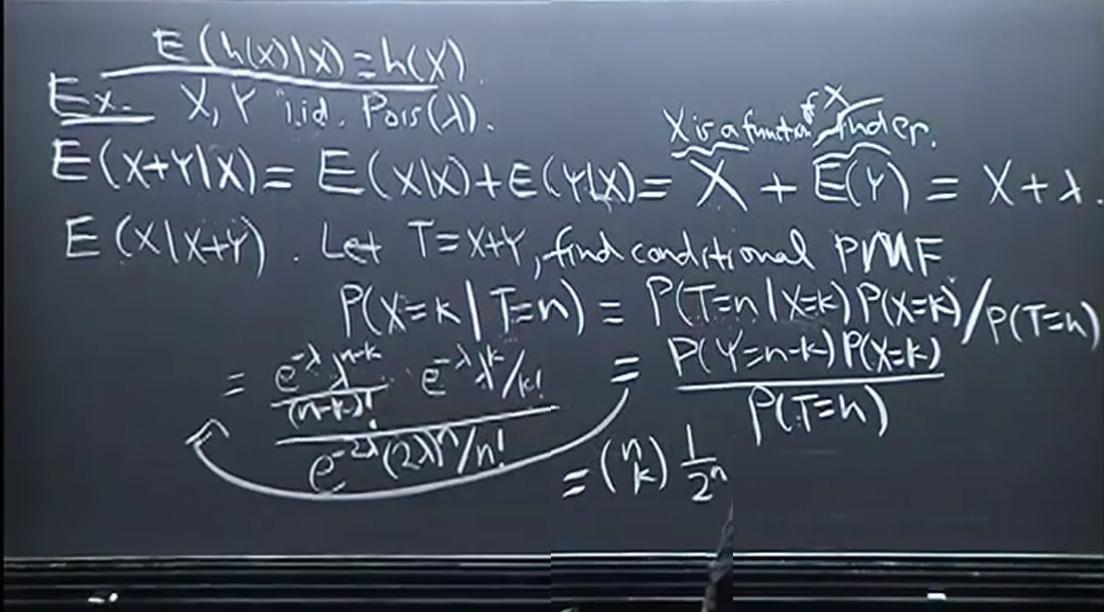 E(h(X)|X) = h(X).
Ex. X, Y i.i.d. Pois(λ).
X is a function of X indep.
E(X+Y|X) = E(X|X) + E(Y|X) = X + E(Y) = X + λ.
E(X|X+Y). Let T=X+Y, find conditional PMF
P(X=k|T=n) = P(T=n|X=k) P(X=k)/P(T=n)
= P(Y=n-k)P(X=k) / P(T=n)
= e^{-λ} λ^{n-k}/(n-k)! e^{-λ} λ^k/k! / e^{-2λ}(2λ)^n/n!
= (n k) 1/2^n